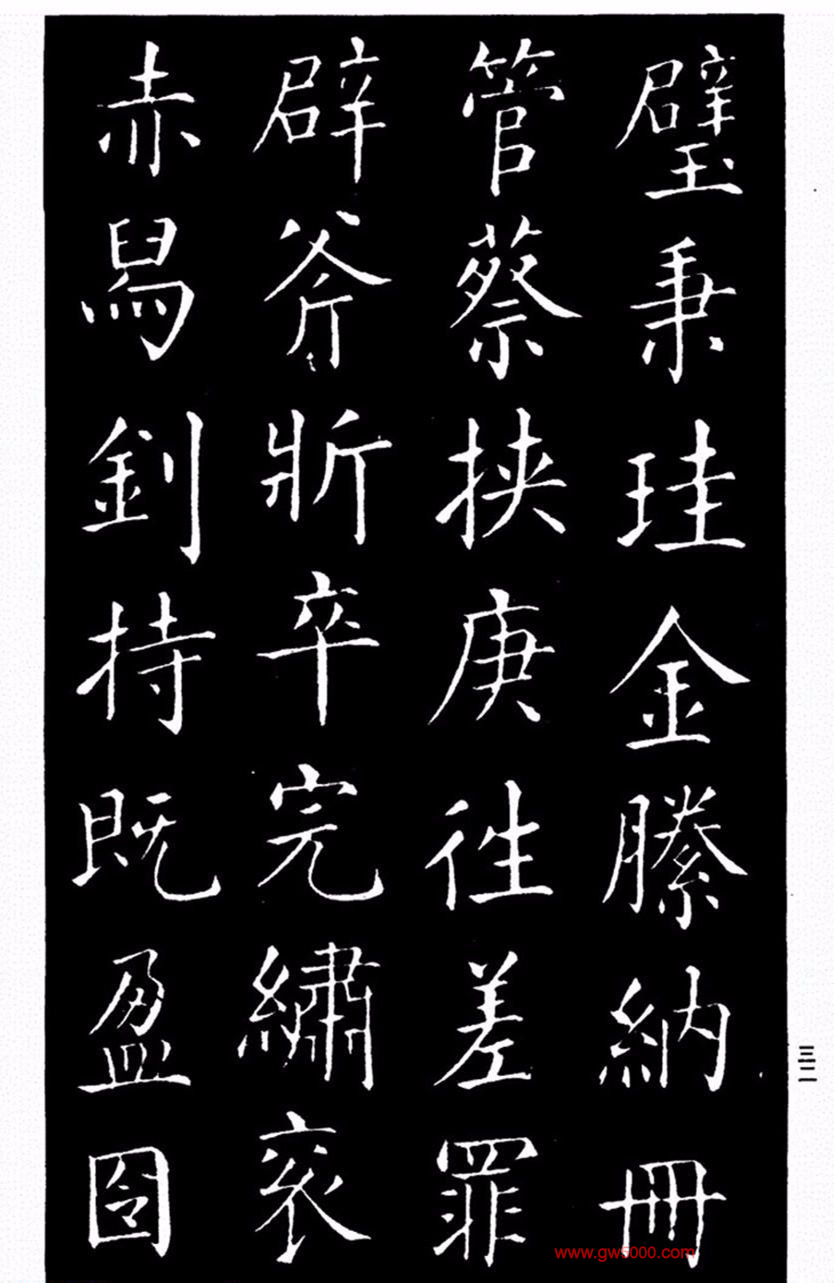 璧秉珪金縢納冊
管蔡挾庚往差罪
辟斧斨卒完繡衮
赤舄釗持既盈囹
三二
www.gw5000.com